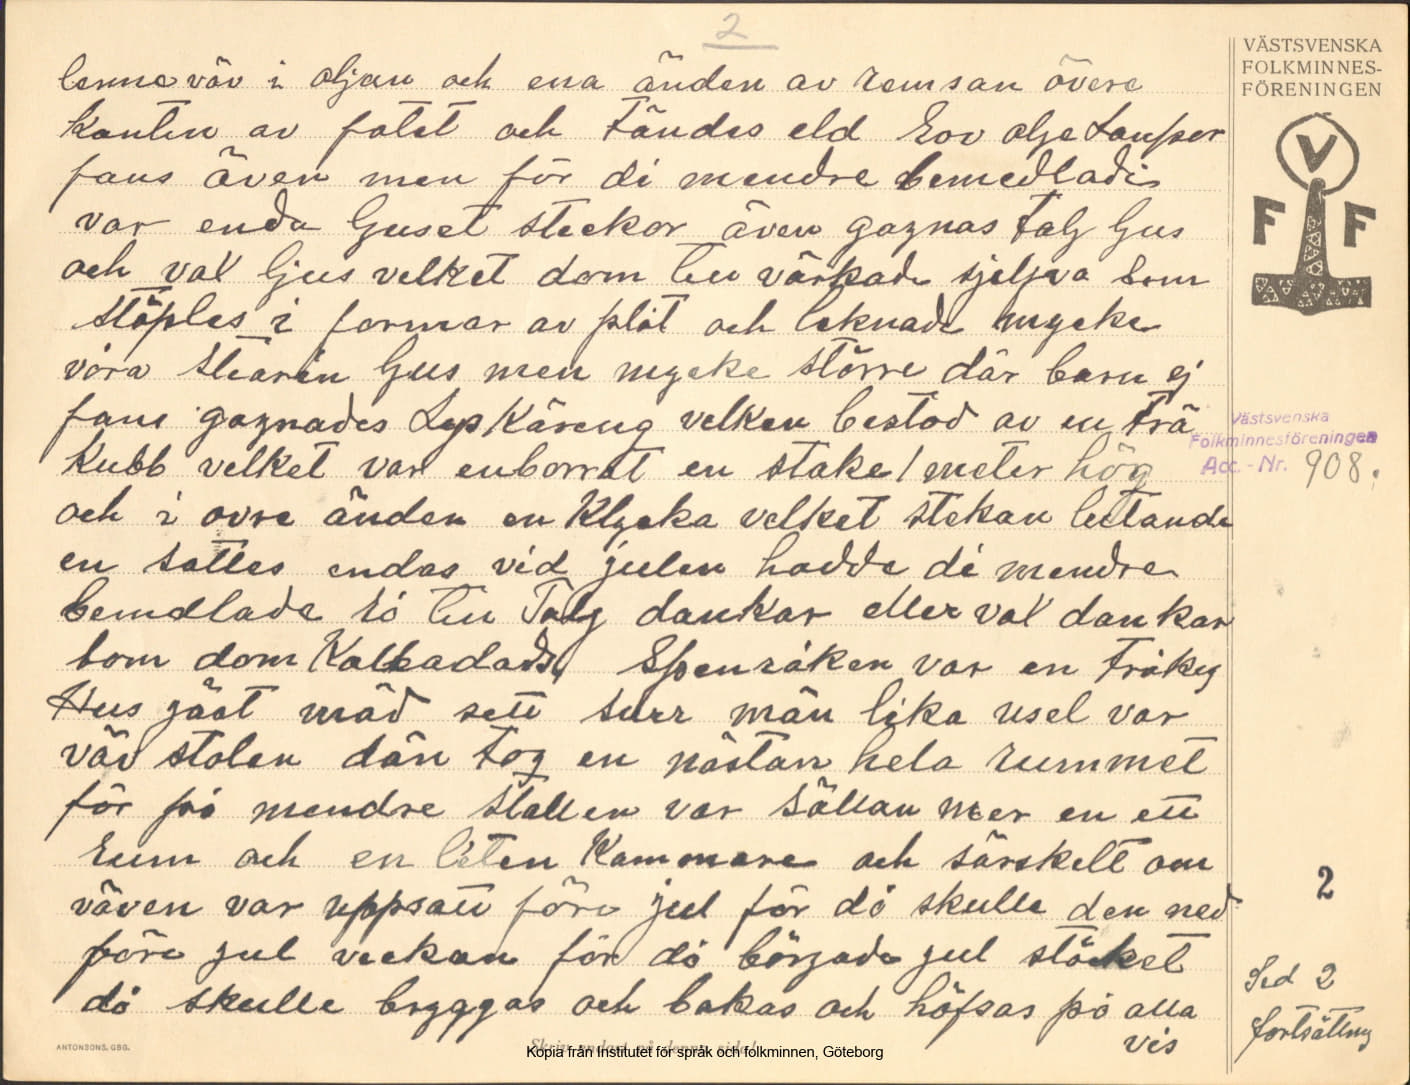 2
VÄSTSVENSKA
FOLKMINNES-
FÖRENINGEN
V
F F
lenne väv i oljan och ena änden av remsan övere
kanten av fatet och tändes eld Rov olje Lamper
fans även men för di mendre bemedladi
var enda ljuset steckor även gagnas talg ljus
och vax ljus velket dom len värkade sjeljva som
stöples i formar av plåt och leknade mycke
våra stearin ljus men mycke större där barn ej
fans gagnades Lys Käreng velken bestod av en trä
Kubb velket var enborrat en stake 1 meter hög
och i ovre änden en Klycka velket stekan letande
en sattes endas vid julen hadde di mendre
bemdlade så len Talg dankar eller vax dankar
som dom Kallade Spenråken var en tråkig
Hus gäst mäd sett surr män lika usel var
väv stolen dän tog en nästan hela rummet
för på mendre stallen var sällan mer en ett
rum och en liten Kammare och särskelt om
väven var uppsatt före jul för då skulle den ned
före jul veckan för då började jul stöcket
då skulle bryggas och bakas och höfsas på alla
vis
Västsvenska
Folkminnesföreningen
Acc.-Nr. 908.
2
Sid 2
fortsättning
ANTONSONS, GBG.
Skriv endast på denna sida!
Kopia från Institutet för språk och folkminnen, Göteborg